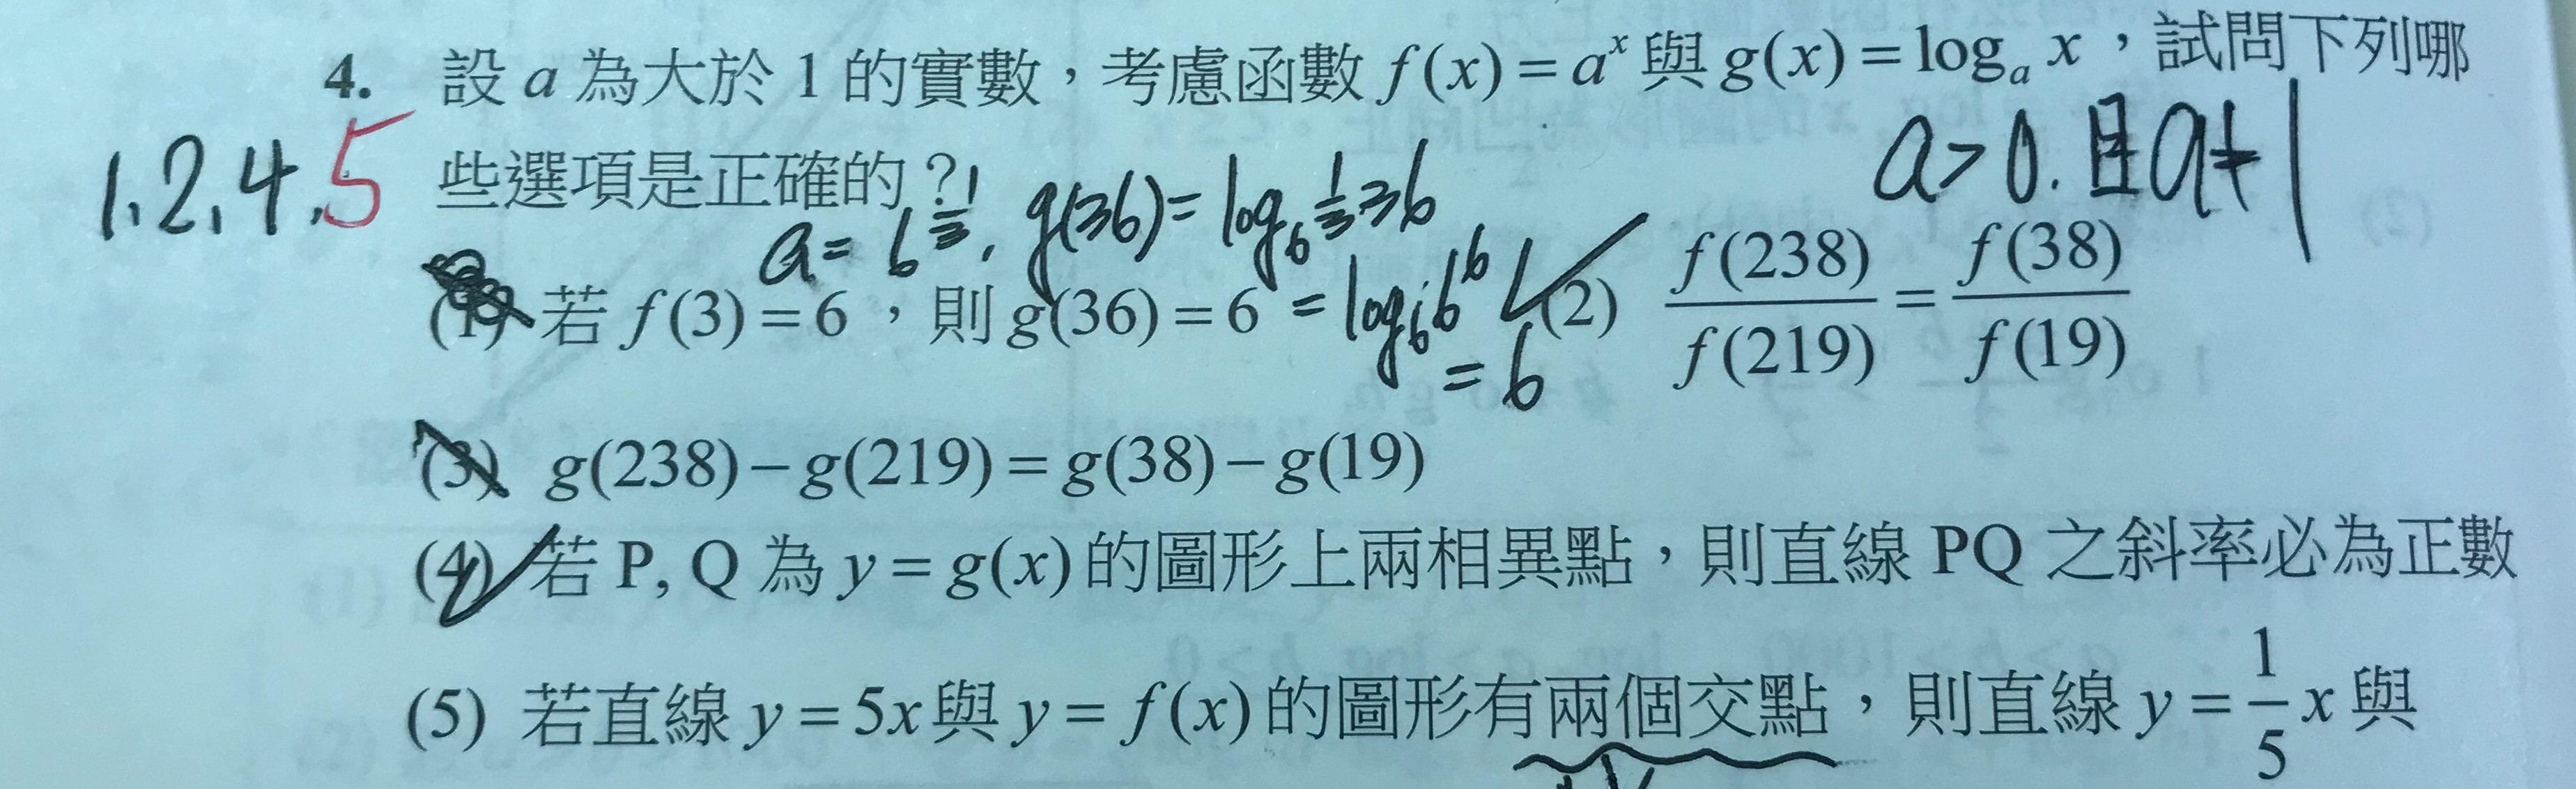 4. 設 a 為大於 1 的實數，考慮函數 f(x) = a^x 與 g(x) = log_a x，試問下列哪
a>0. 且 a≠1
1. 2. 4. 5 些選項是正確的？
a = 6^{1/3}, g(36) = log_6^{1/3} 36
(1) 若 f(3) = 6，則 g(36) = 6 = log_6 6^6 (2) f(238)/f(219) = f(38)/f(19)
= 6
(3) g(238) − g(219) = g(38) − g(19)
(4) 若 P, Q 為 y = g(x) 的圖形上兩相異點，則直線 PQ 之斜率必為正數
(5) 若直線 y = 5x 與 y = f(x) 的圖形有兩個交點，則直線 y = 1/5 x 與